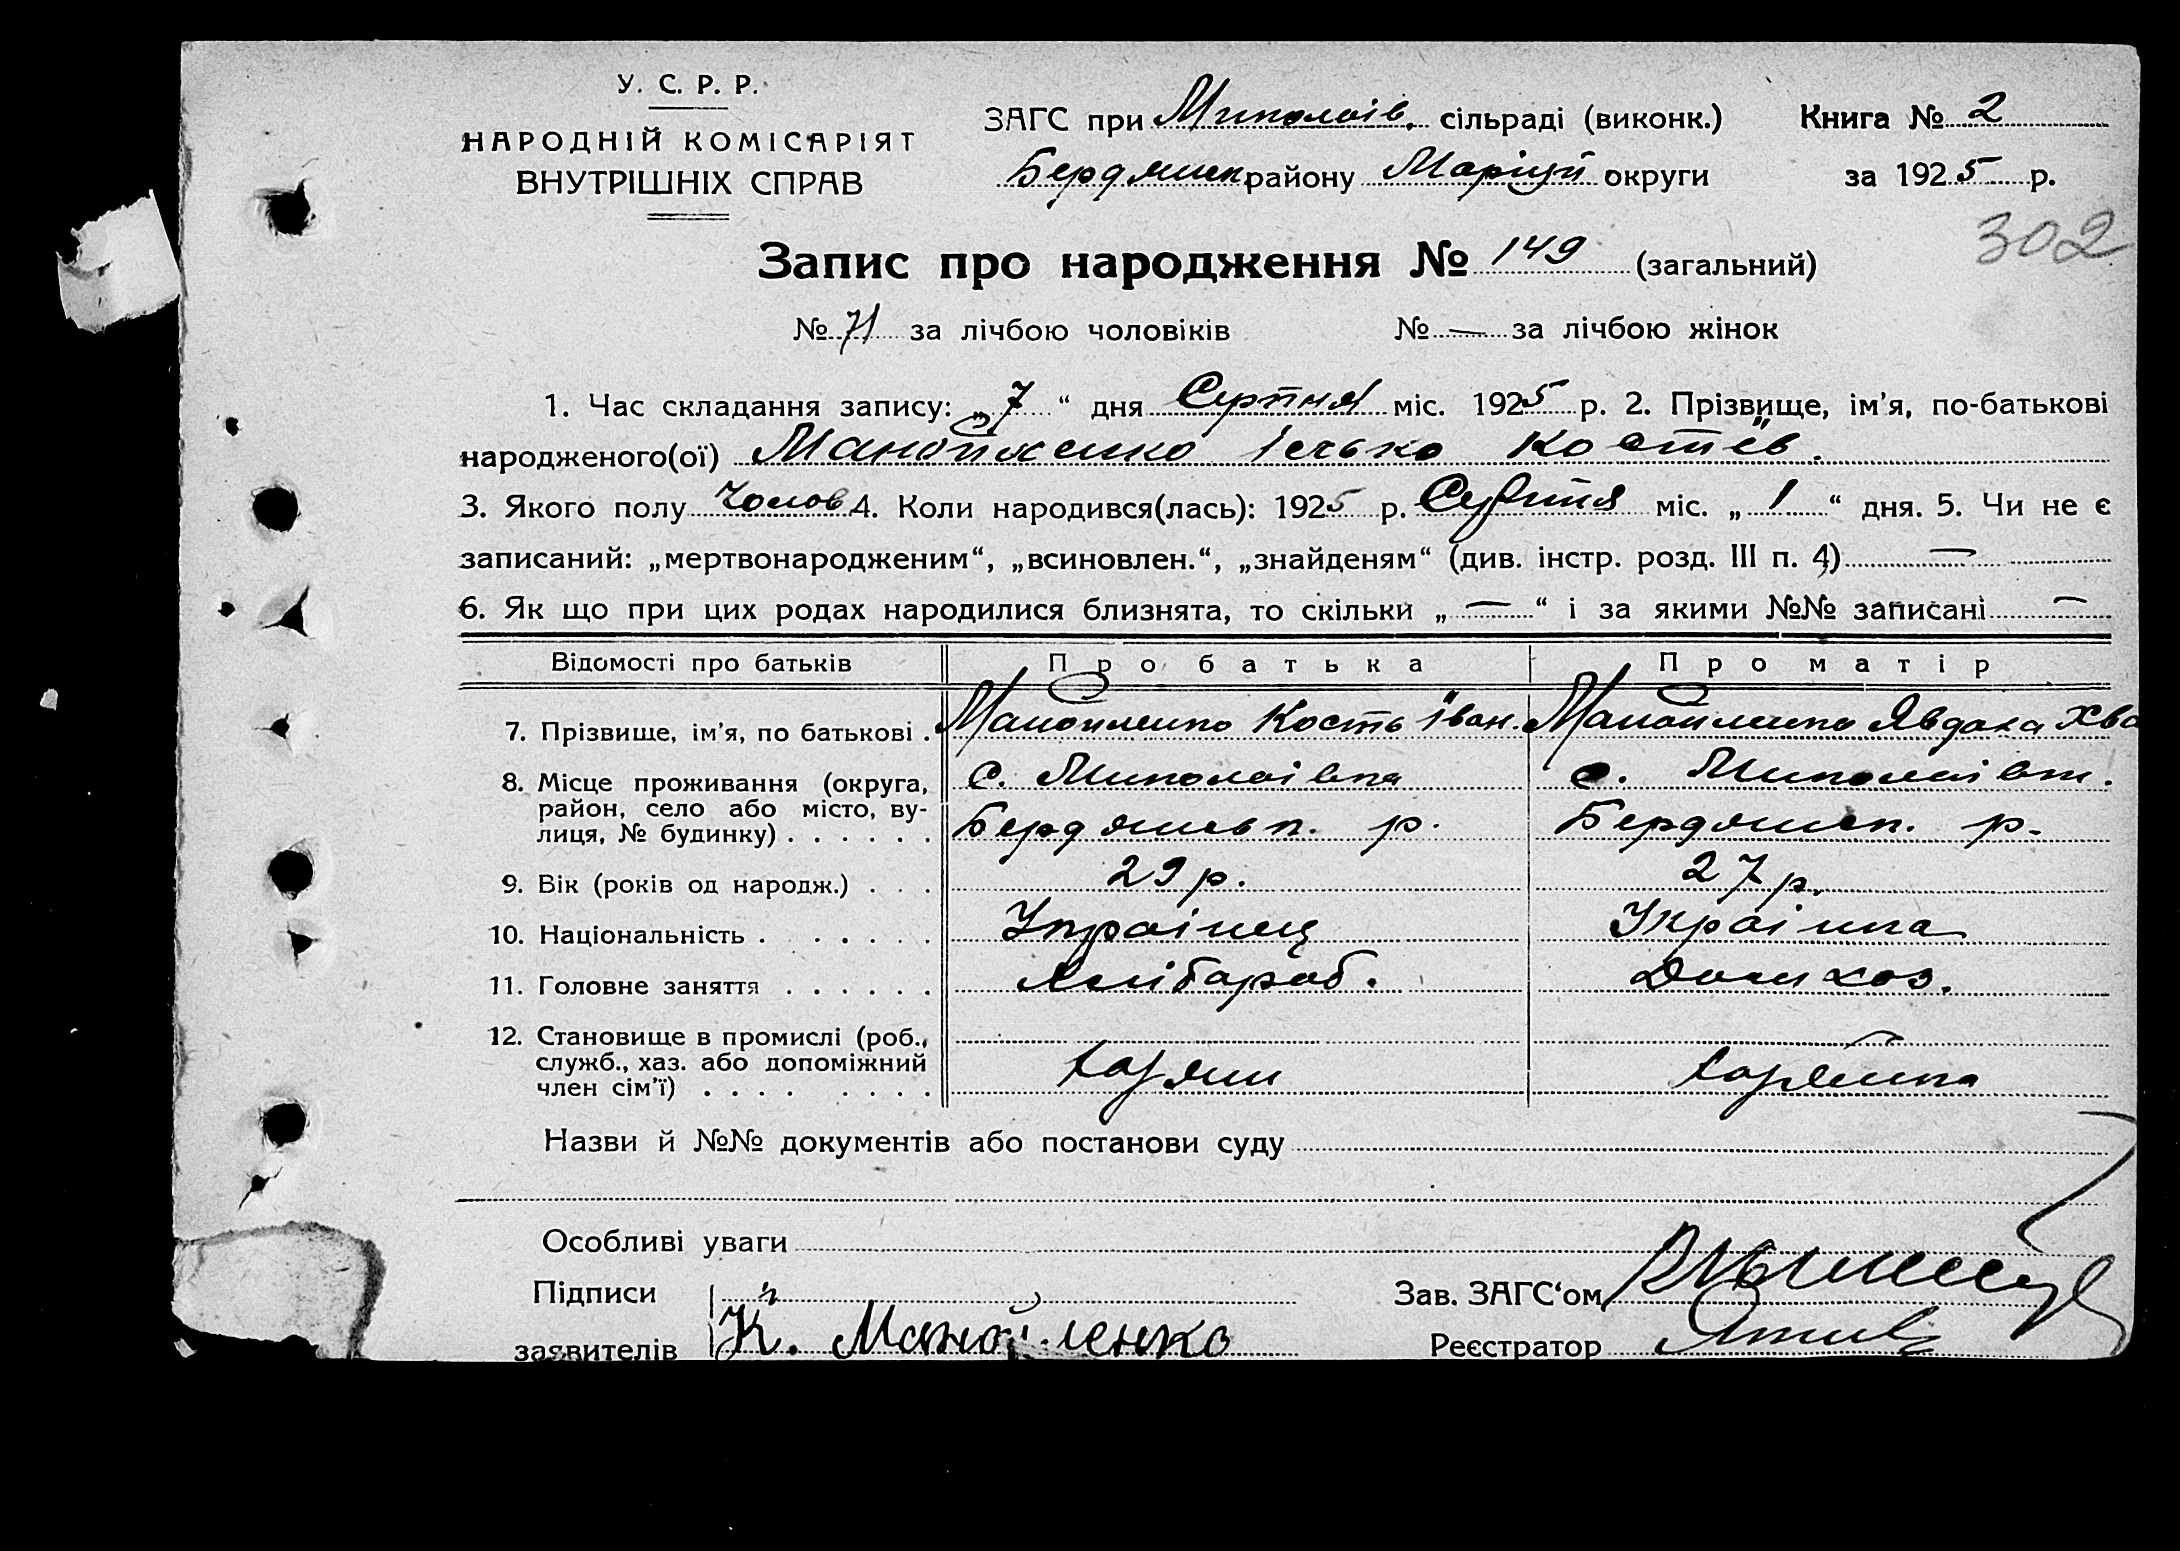 У. С. Р. Р.
НАРОДНІЙ КОМІСАРІЯТ
ВНУТРІШНІХ СПРАВ
ЗАГС при Миколаів. сільраді (виконк.) Книга № 2
Бердянск району Маріуп округи за 1925 р.
302
Запис про народження № 149 (загальний)
№ 71 за лічбою чоловіків № — за лічбою жінок
1. Час складання запису: „7“ дня Серпня міс. 1925 р. 2. Прізвище, ім’я, по-батькові
народженого(ої) Манойленко Ілько Костев.
3. Якого полу Чолов 4. Коли народився(лась): 1925 р. Серпня міс. „1“ дня. 5. Чи не є
записаний: „мертвонародженим“, „всиновлен.“, „знайденям“ (див. інстр. розд. III п. 4) —
6. Як що при цих родах народилися близнята, то скільки „—“ і за якими №№ записані —
Відомості про батьків Про батька Про матір
7. Прізвище, ім’я, по батькові . Манойленко Кость Іван. Манойленко Явдоха Хво
8. Місце проживання (округа, с. Миколаівка с. Миколаівк.
район, село або місто, ву-
лиця, № будинку) . . . . . . Бердянськ. р. Бердянск. р.
9. Вік (років од народж.) . . . 29 р. 27 р.
10. Національність . . . . . . Украінец Украінка
11. Головне заняття . . . . . . хлібароб. Дом хоз.
12. Становище в промислі (роб.,
служб., хаз. або допоміжний
член сім’ї) . . . . . . . .
Назви й №№ документів або постанови суду
Особливі уваги
Підписи Зав. ЗАГС‘ом
заявителів К. Манойленко Реєстратор